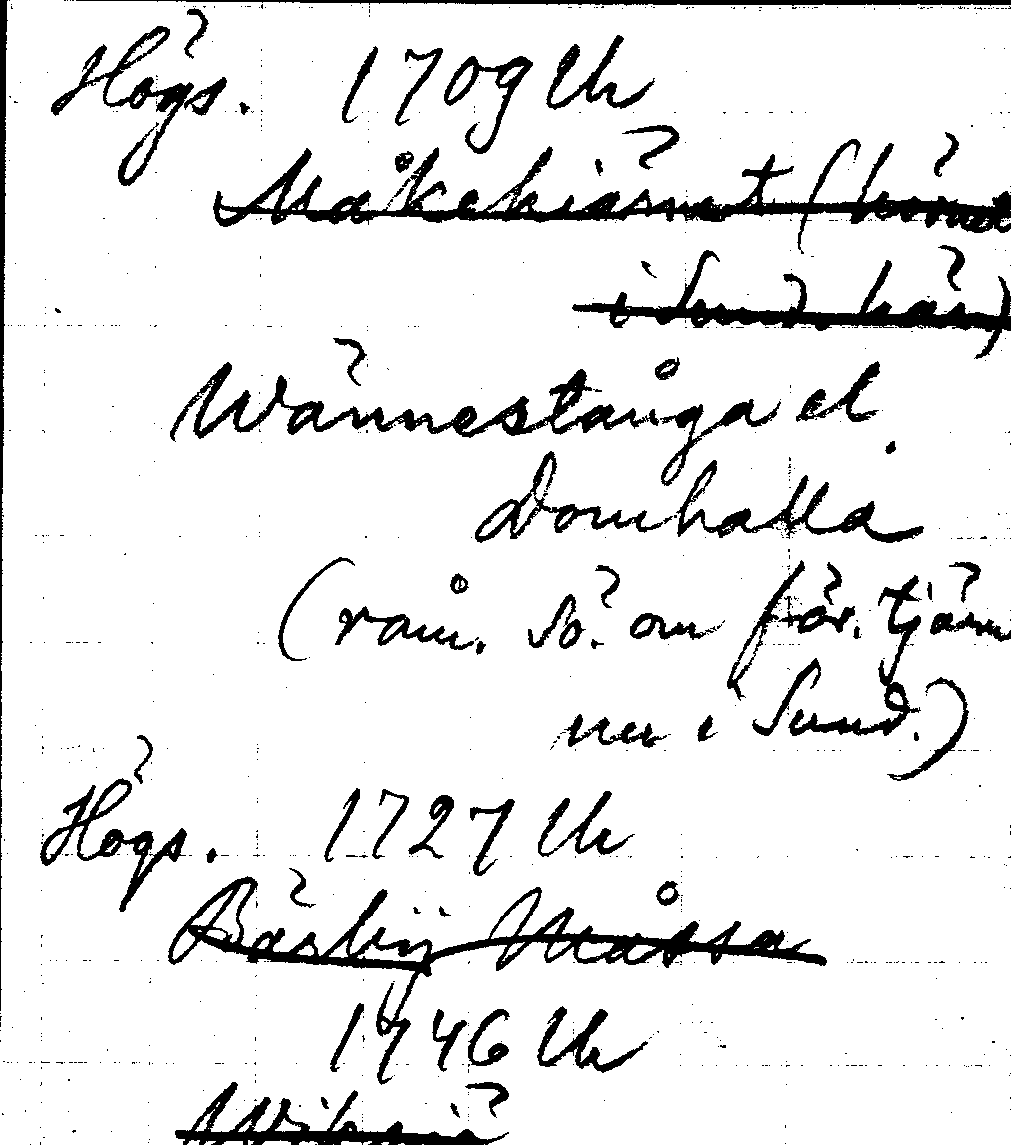 Högs. 1709 Uh
Måkekiärnet (hörnet
i Sund. här)
Wännestånga el.
Domhalla
(råm. sö. om för. tjärn
nu i Sund.)
Högs. 1727 Uh
Bärbÿ Måssa
1746 Uh